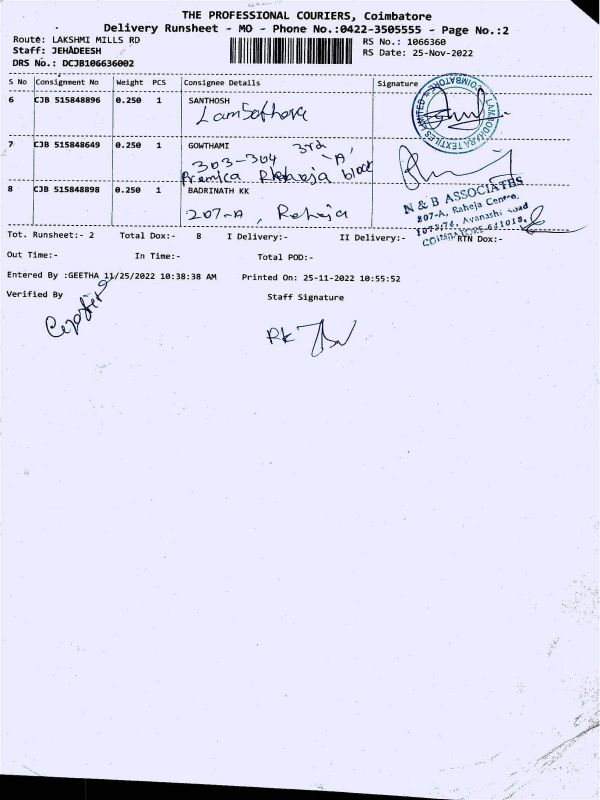 THE PROFESSIONAL COURIERS, Coimbatore
Delivery Runsheet - MO - Phone No.:0422-3505555 - Page No.:2
Route: LAKSHMI MILLS RD RS No.: 1066360
Staff: JEHADEESH RS Date: 25-Nov-2022
DRS No.: DCJB106636002
S No Consignment No Weight PCS Consignee Details Signature
6 CJB 515848896 0.250 1 SANTHOSH
7 CJB 515848649 0.250 1 GOWTHAMI
303-304 3rd 'A'
block
8 CJB 515848898 0.250 1 BADRINATH KK
207-A, Raheja
N & B ASSOCIATES
207-A, Raheja Centre,
1073,74, Avanashi Road
COIMBATORE-641018.
Tot. Runsheet:- 2 Total Dox:- 8 I Delivery:- II Delivery:- RTN Dox:-
Out Time:- In Time:- Total POD:-
Entered By :GEETHA 11/25/2022 10:38:38 AM Printed On: 25-11-2022 10:55:52
Verified By Staff Signature